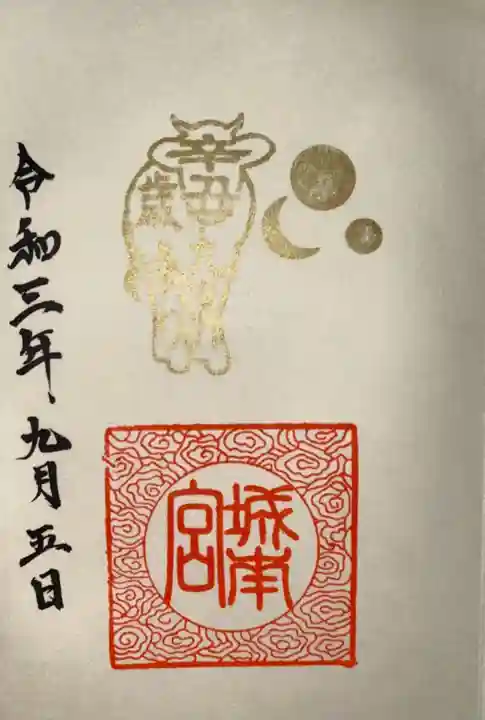 辛丑
歳
城南
宮
令和三年、九月五日